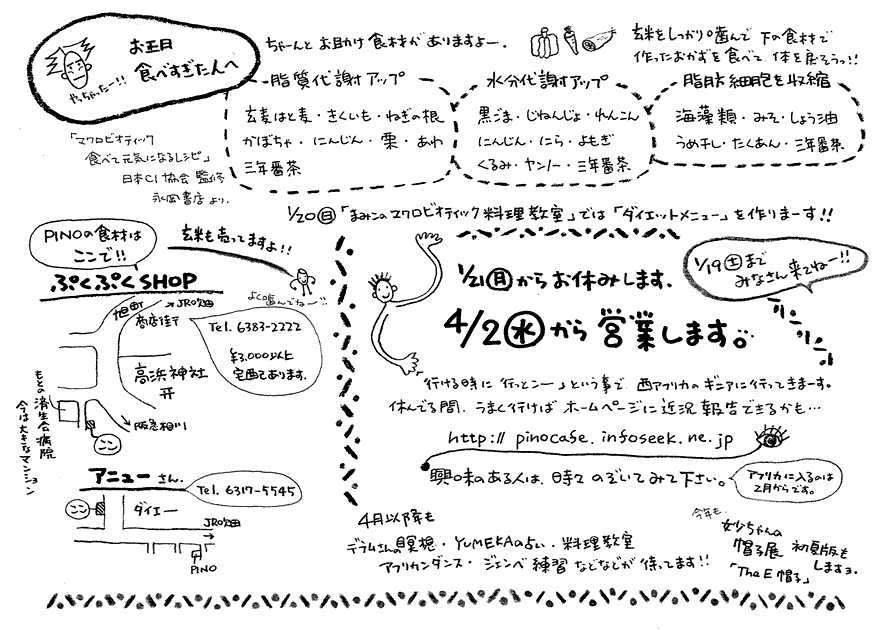 お正月
食べすぎたんへ
やっちゃったー!!
ちゃーんとお助け食材がありますよー.
玄米をしっかり噛んで 下の食材で
作ったおかずを食べて 体を戻そうっ!!
脂質代謝アップ
玄麦はと麦・きくいも・ねぎの根
かぼちゃ・にんじん・栗・あわ
三年番茶
水分代謝アップ
黒ごま・じねんじょ・れんこん
にんじん・にら・よもぎ
くるみ・ヤンノー・三年番茶
脂肪細胞を収縮
海藻類・みそ・しょう油
うめ干し・たくあん・三年番茶
「マクロビオティック
食べて元気になるレシピ」
日本CI協会 監修
永岡書店 より.
1/20(日)「まみこンのマクロビオティック料理教室」では「ダイエットメニュー」を作りまーす!!
PINOの食材は
ここで!!
玄米も売ってますよ!!
ぷくぷくSHOP
よく噛んでね〜!!
旭町
→JR吹田
商店街
Tel. 6383-2222
¥3,000以上
宅配であります.
高浜神社
もとの済生会病院
今は大きなマンション
阪急相川
ここ
アニューさん.
Tel. 6317-5545
ここ
ダイエー
JR吹田
→
PINO
1/21(月)からお休みします.
1/19(土)まで
みなさん来てねー!!
4/2(水)から営業します。
「行ける時に行っとこー」という事で 西アフリカのギニアに行ってきまーす。
休んでる間、うまく行けば ホームページに近況報告できるかも…
http://pinocafe.infoseek.ne.jp
興味のある人は、時々のぞいてみて下さい。
アフリカに入るのは
2月からです。
4月以降も
デラムさんの瞑想・YUMEKAの占い・料理教室
アフリカンダンス・ジェンベ練習などなどが待ってます!!
今年も.
妙ちゃんの
帽子展 初夏版も
「The E帽子」 しますョ.